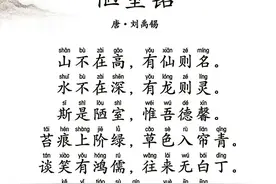 陋室铭
唐·刘禹锡
shān bú zài gāo yǒu xiān zé míng
山不在高，有仙则名。
shuǐ bú zài shēn yǒu lóng zé líng
水不在深，有龙则灵。
sī shì lòu shì wéi wú dé xīn
斯是陋室，惟吾德馨。
tái hén shàng jiē lǜ cǎo sè rù lián qīng
苔痕上阶绿，草色入帘青。
tán xiào yǒu hóng rú wǎng lái wú bái dīng
谈笑有鸿儒，往来无白丁。